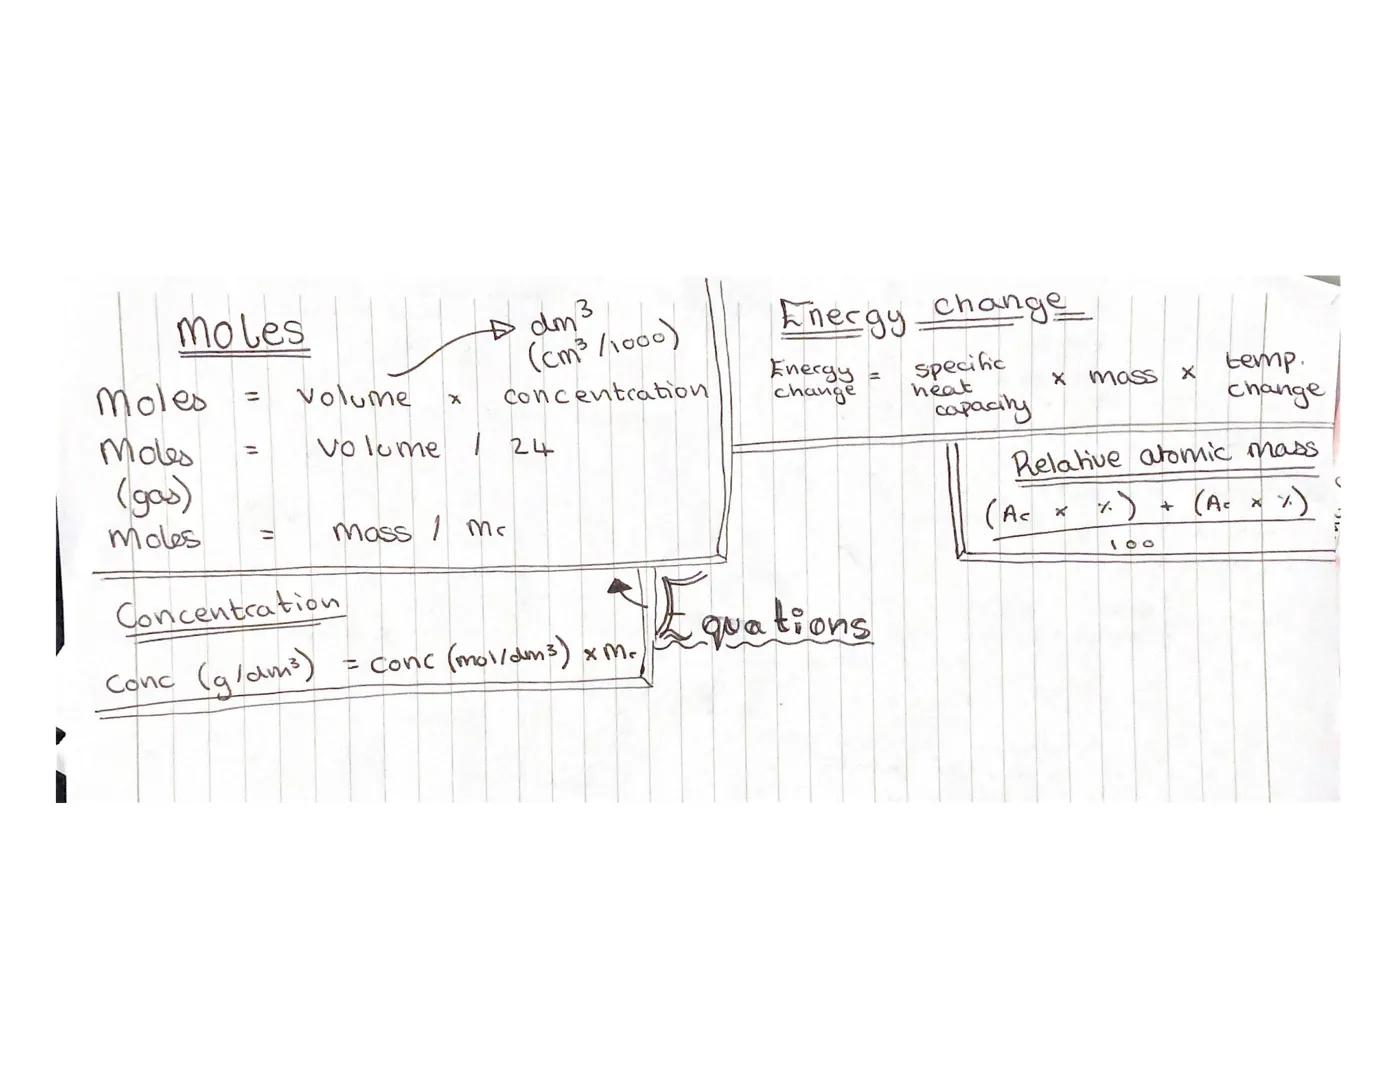 Moles
dm³
(cm³/1000)
Moles = volume × concentration
Moles = volume / 24
(gas)
Moles = mass / Mr
Concentration
conc (g/dm³) = conc (mol/dm³) × Mr
Equations
Energy change
Energy change = specific heat capacity × mass × temp. change
Relative atomic mass
(Ar × %) + (Ar × %)
100